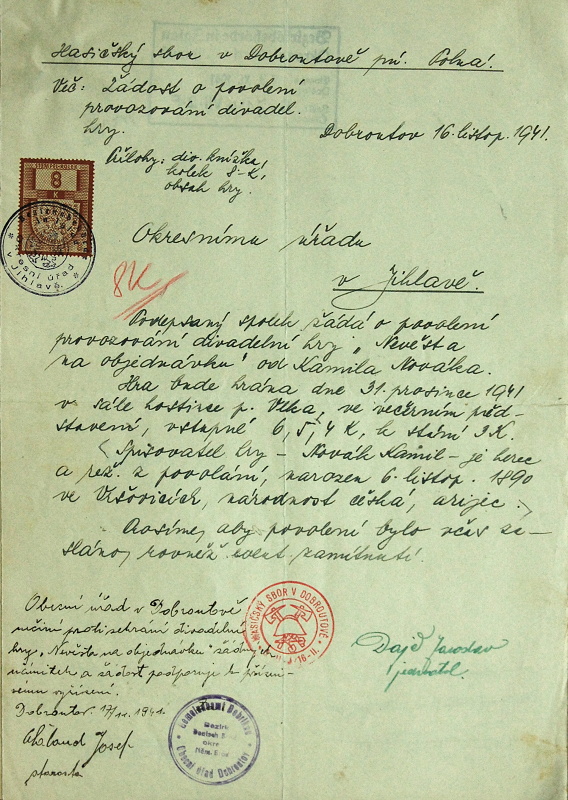 Hasičský sbor v Dobroutově pú. Polná.
Věc: Žádost o povolení
provozování divadel.
hry.
Dobroutov 16. listop. 1941.
Přílohy: div. knížka,
kolek 8-K,
obsah hry.
8
K
Okresní úřad
v Jihlavě.
Okresnímu úřadu
v Jihlavě.
8K
Podepsaný spolek žádá o povolení
provozování divadelní hry „Nevěsta
na objednávku" od Kamila Nováka.
Hra bude hrána dne 31. prosince 1941
v sále hostince p. Vlka, ve večerním před-
stavení, vstupné 6, 5, 4 K, k stání 3 K.
Spisovatel hry – Novák Kamil – je herec
a rež. z povolání, narozen 6. listop. 1890
ve Vršovicích, národnost česká, arijec.
Prosíme, aby povolení bylo včas za-
sláno, rovněž event. zamítnutí.
HASIČSKÝ SBOR V DOBROUTOVĚ
Obecní úřad v Dobroutově
nečiní proti sehrání divadelní
hry „Nevěsta na objednávku" žádných
námitek a žádost podporuje k přízni-
vému vyřízení.
Dobroutov 17/11. 1941.
Josef
starosta
Dajč Jaroslav
jednatel.
Bezirk
Deutsch Brod
okres
Něm. Brod
Obecní úřad Dobroutov